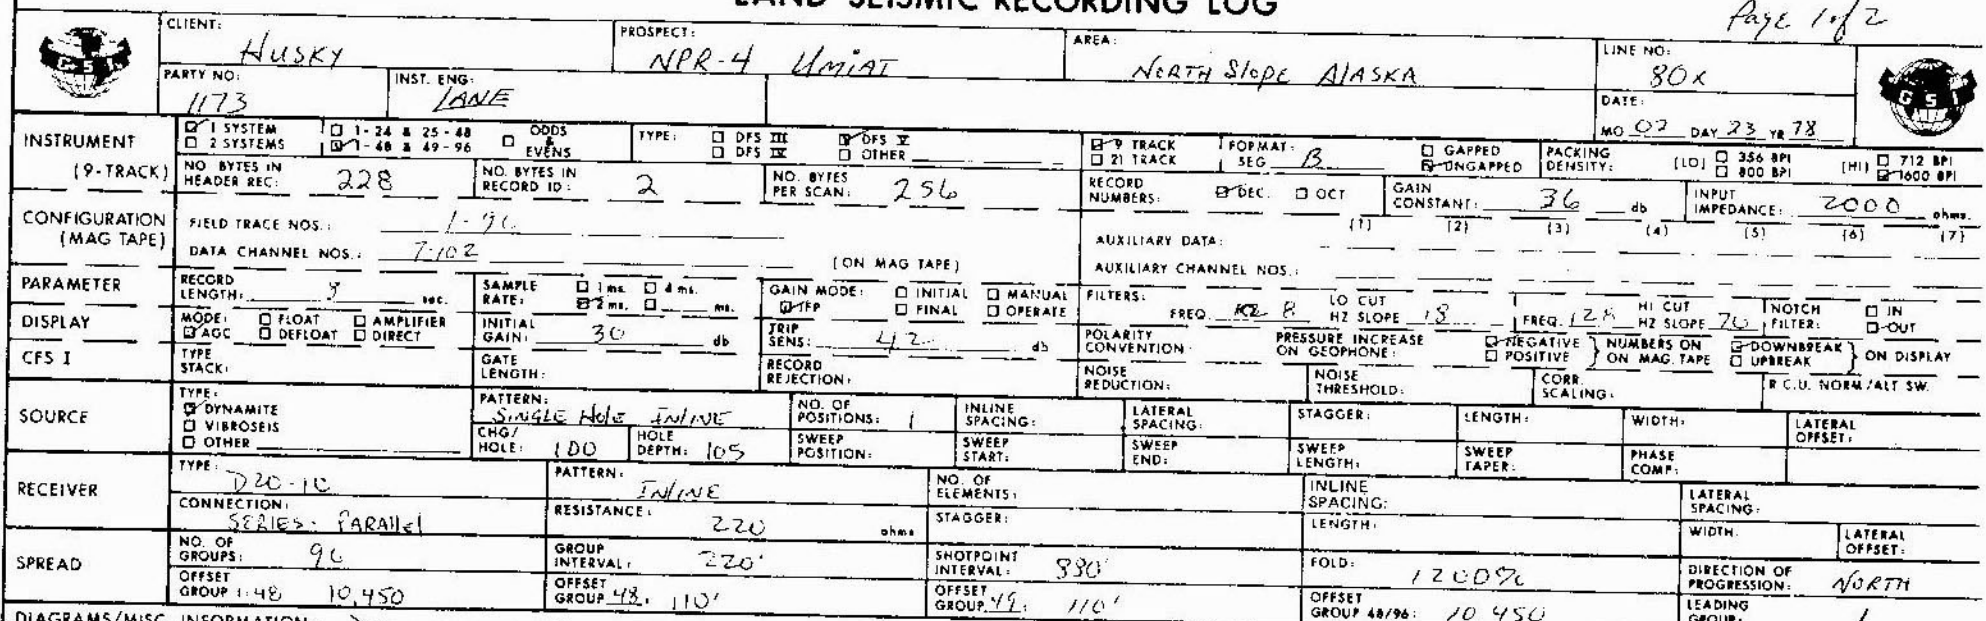 LAND SEISMIC RECORDING LOG
Page 1 of 2
GSI
CLIENT: HUSKY
PROSPECT: NPR-4 UMIAT
AREA: NORTH SLOPE ALASKA
LINE NO: 80X
GSI
PARTY NO: 1173
INST. ENG: LANE
DATE: MO 02 DAY 23 YR 78
INSTRUMENT (9-TRACK)
1 SYSTEM 1-24 & 25-48 ODDS & EVENS TYPE: DFS III DFS V 9 TRACK FORMAT: SEG B GAPPED PACKING DENSITY: (LO) 356 BPI (HI) 712 BPI
2 SYSTEMS 1-48 & 49-96 DFS IV OTHER 21 TRACK UNGAPPED 800 BPI 1600 BPI
NO. BYTES IN HEADER REC: 228 NO. BYTES IN RECORD ID: 2 NO. BYTES PER SCAN: 256 RECORD NUMBERS: DEC. OCT GAIN CONSTANT: 36 db INPUT IMPEDANCE: 2000 ohms.
CONFIGURATION (MAG TAPE)
FIELD TRACE NOS.: 1-96 AUXILIARY DATA: (1) (2) (3) (4) (5) (6) (7)
DATA CHANNEL NOS.: 7-102 (ON MAG TAPE) AUXILIARY CHANNEL NOS.:
PARAMETER
RECORD LENGTH: sec. SAMPLE RATE: 1 ms. 4 ms. 2 ms. ms. GAIN MODE: IFP INITIAL MANUAL FINAL OPERATE FILTERS: FREQ. 8 LO CUT HZ SLOPE 18 FREQ. 128 HI CUT HZ SLOPE 70 NOTCH FILTER: IN OUT
DISPLAY
MODE: FLOAT AMPLIFIER AGC DEFLOAT DIRECT INITIAL GAIN: 30 db TRIP SENS: 42 db POLARITY CONVENTION: PRESSURE INCREASE ON GEOPHONE: NEGATIVE POSITIVE NUMBERS ON ON MAG. TAPE DOWNBREAK UPBREAK ON DISPLAY
CFS I
TYPE STACK: GATE LENGTH: RECORD REJECTION: NOISE REDUCTION: NOISE THRESHOLD: CORR. SCALING: R.C.U. NORM/ALT SW.
SOURCE
TYPE: DYNAMITE VIBROSEIS OTHER PATTERN: SINGLE HOLE INLINE NO. OF POSITIONS: 1 INLINE SPACING: LATERAL SPACING: STAGGER: LENGTH: WIDTH: LATERAL OFFSET:
CHG/HOLE: 100 HOLE DEPTH: 105 SWEEP POSITION: SWEEP START: SWEEP END: SWEEP LENGTH: SWEEP TAPER: PHASE COMP:
RECEIVER
TYPE: D20-10 PATTERN: INLINE NO. OF ELEMENTS: INLINE SPACING: LATERAL SPACING:
CONNECTION: SERIES-PARALLEL RESISTANCE: 220 ohms STAGGER: LENGTH: WIDTH: LATERAL OFFSET:
SPREAD
NO. OF GROUPS: 96 GROUP INTERVAL: 220' SHOTPOINT INTERVAL: 880' FOLD: 1200% DIRECTION OF PROGRESSION: NORTH
OFFSET GROUP 1:48 10,450 OFFSET GROUP 48: 110' OFFSET GROUP 49: 110' OFFSET GROUP 48/96: 10 450 LEADING GROUP: 1
DIAGRAMS/MISC. INFORMATION: